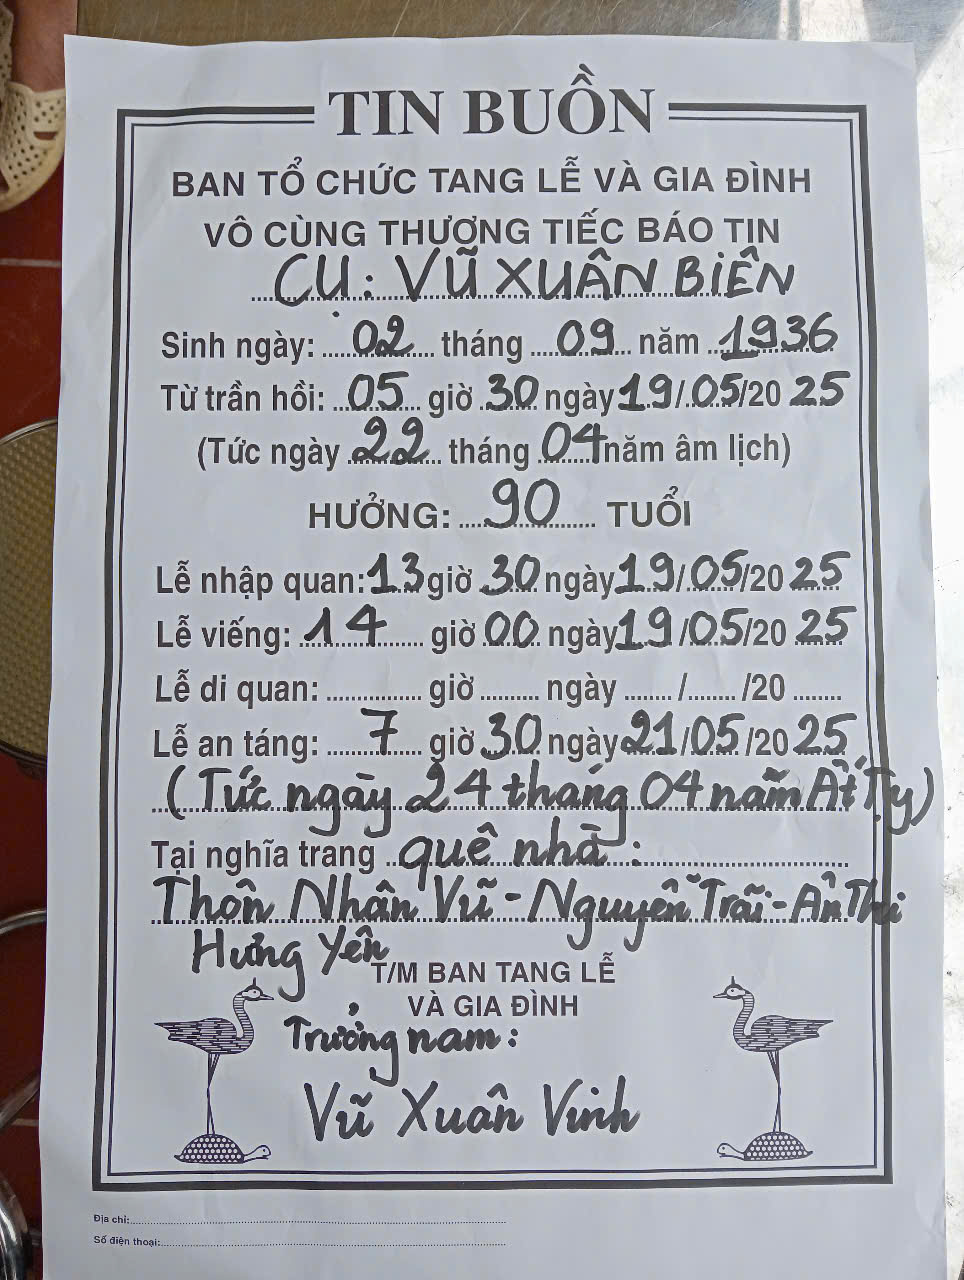 TIN BUỒN
BAN TỔ CHỨC TANG LỄ VÀ GIA ĐÌNH
VÔ CÙNG THƯƠNG TIẾC BÁO TIN
CỤ: VŨ XUÂN BIÊN
Sinh ngày: 02 tháng 09 năm 1936
Từ trần hồi: 05 giờ 30 ngày 19/05/20 25
(Tức ngày 22 tháng 04 năm âm lịch)
HƯỞNG: 90 TUỔI
Lễ nhập quan: 13 giờ 30 ngày 19/05/20 25
Lễ viếng: 14 giờ 00 ngày 19/05/20 25
Lễ di quan: ............... giờ ......... ngày ....... /....... /20 ........
Lễ an táng: 7 giờ 30 ngày 21/05/20 25
(Tức ngày 24 tháng 04 năm Ất Tỵ)
Tại nghĩa trang quê nhà:
Thôn Nhân Vũ - Nguyễn Trãi - Ân Thi
Hưng Yên
T/M BAN TANG LỄ
VÀ GIA ĐÌNH
Trưởng nam:
Vũ Xuân Vinh
Địa chỉ:
Số điện thoại: